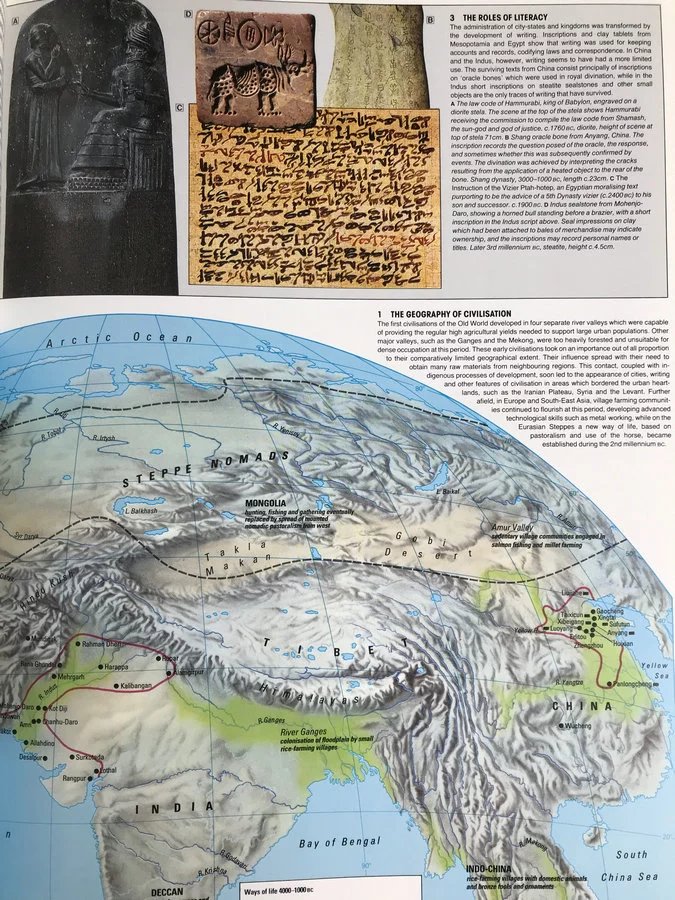 A
D
B
C
3 THE ROLES OF LITERACY
The administration of city-states and kingdoms was transformed by
the development of writing. Inscriptions and clay tablets from
Mesopotamia and Egypt show that writing was used for keeping
accounts and records, codifying laws and correspondence. In China
and the Indus, however, writing seems to have had a more limited
use. The surviving texts from China consist principally of inscriptions
on 'oracle bones' which were used in royal divination, while in the
Indus short inscriptions on steatite sealstones and other small
objects are the only traces of writing that have survived.
A The law code of Hammurabi, king of Babylon, engraved on a
diorite stela. The scene at the top of the stela shows Hammurabi
receiving the commission to compile the law code from Shamash,
the sun-god and god of justice. c.1760 BC, diorite, height of scene at
top of stela 71cm. B Shang oracle bone from Anyang, China. The
inscription records the question posed of the oracle, the response,
and sometimes whether this was subsequently confirmed by
events. The divination was achieved by interpreting the cracks
resulting from the application of a heated object to the rear of the
bone. Shang dynasty, 3000-1000 BC, length c.23cm. C The
Instruction of the Vizier Ptah-hotep, an Egyptian moralising text
purporting to be the advice of a 5th Dynasty vizier (c.2400 BC) to his
son and successor. c.1900 BC. D Indus sealstone from Mohenjo-
Daro, showing a horned bull standing before a brazier, with a short
inscription in the Indus script above. Seal impressions on clay
which had been attached to bales of merchandise may indicate
ownership, and the inscriptions may record personal names or
titles. Later 3rd millennium BC, steatite, height c.4.5cm.
1 THE GEOGRAPHY OF CIVILISATION
The first civilisations of the Old World developed in four separate river valleys which were capable
of providing the regular high agricultural yields needed to support large urban populations. Other
major valleys, such as the Ganges and the Mekong, were too heavily forested and unsuitable for
dense occupation at this period. These early civilisations took on an importance out of all proportion
to their comparatively limited geographical extent. Their influence spread with their need to
obtain many raw materials from neighbouring regions. This contact, coupled with in-
digenous processes of development, soon led to the appearance of cities, writing
and other features of civilisation in areas which bordered the urban heart-
lands, such as the Iranian Plateau, Syria and the Levant. Further
afield, in Europe and South-East Asia, village farming communit-
ies continued to flourish at this period, developing advanced
technological skills such as metal working, while on the
Eurasian Steppes a new way of life, based on
pastoralism and use of the horse, became
established during the 2nd millennium BC.
Arctic Ocean
R. Tobol
R. Irtysh
R. Yenisey
STEPPE NOMADS
L. Baikal
L. Balkhash
MONGOLIA
hunting, fishing and gathering eventually
replaced by spread of mounted
nomadic pastoralism from west
Amur Valley
sedentary village communities engaged in
salmon fishing and millet farming
Syr Darya
Takla
Makan
Gobi
Desert
Hindu Kush
Gaocheng
Taixicun
Xingtai
Xibeigang
Sufutun
Yellow R.
Luoyang
Anyang
Zhengzhou
Yellow
Sea
R. Yangtze
Panlongcheng
CHINA
Wucheng
TIBET
Himalayas
Rahman Dheri
Harappa
Rupar
Alamgirpur
Mehrgarh
Kalibangan
R. Indus
Kot Diji
Chanhu-Daro
Amri
Allahdino
Desalpur
Surkotada
Lothal
Rangpur
R.Ganges
River Ganges
colonisation of floodplain by small
rice-farming villages
INDIA
Bay of Bengal
R. Mekong
South
China Sea
20°
90°
R. Godavari
DECCAN
INDO-CHINA
rice-farming villages with domestic animals
and bronze tools and ornaments
Ways of life 4000-1000 BC